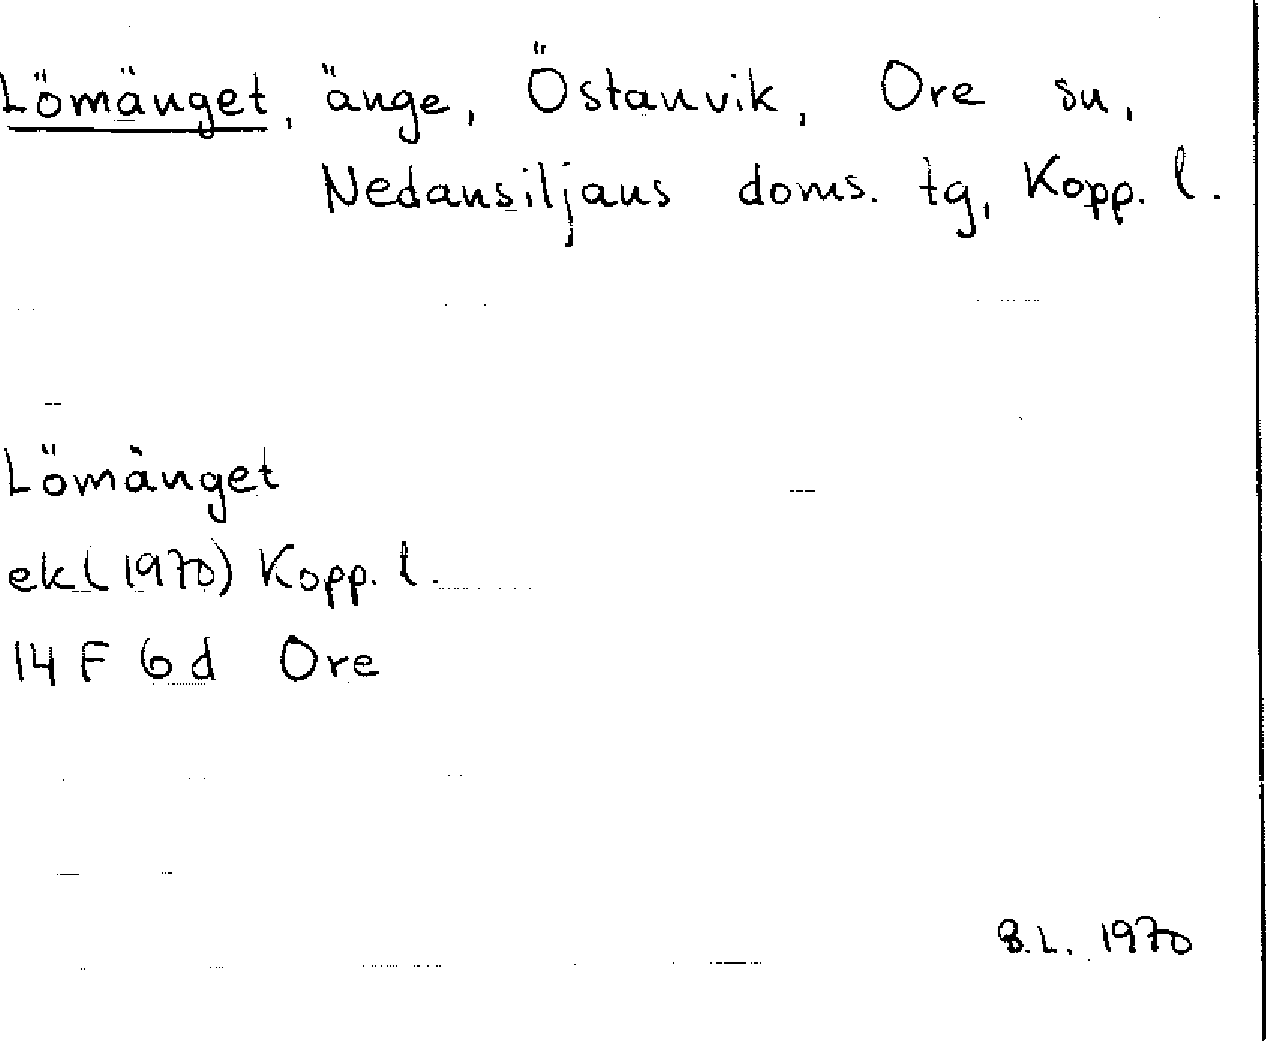 Lömänget, änge, Östanvik, Ore sn,
Nedansiljans doms. tg, Kopp. l.
Lömänget
ekl (1970) Kopp. l.
14 F 6 d Ore
B.L. 1970